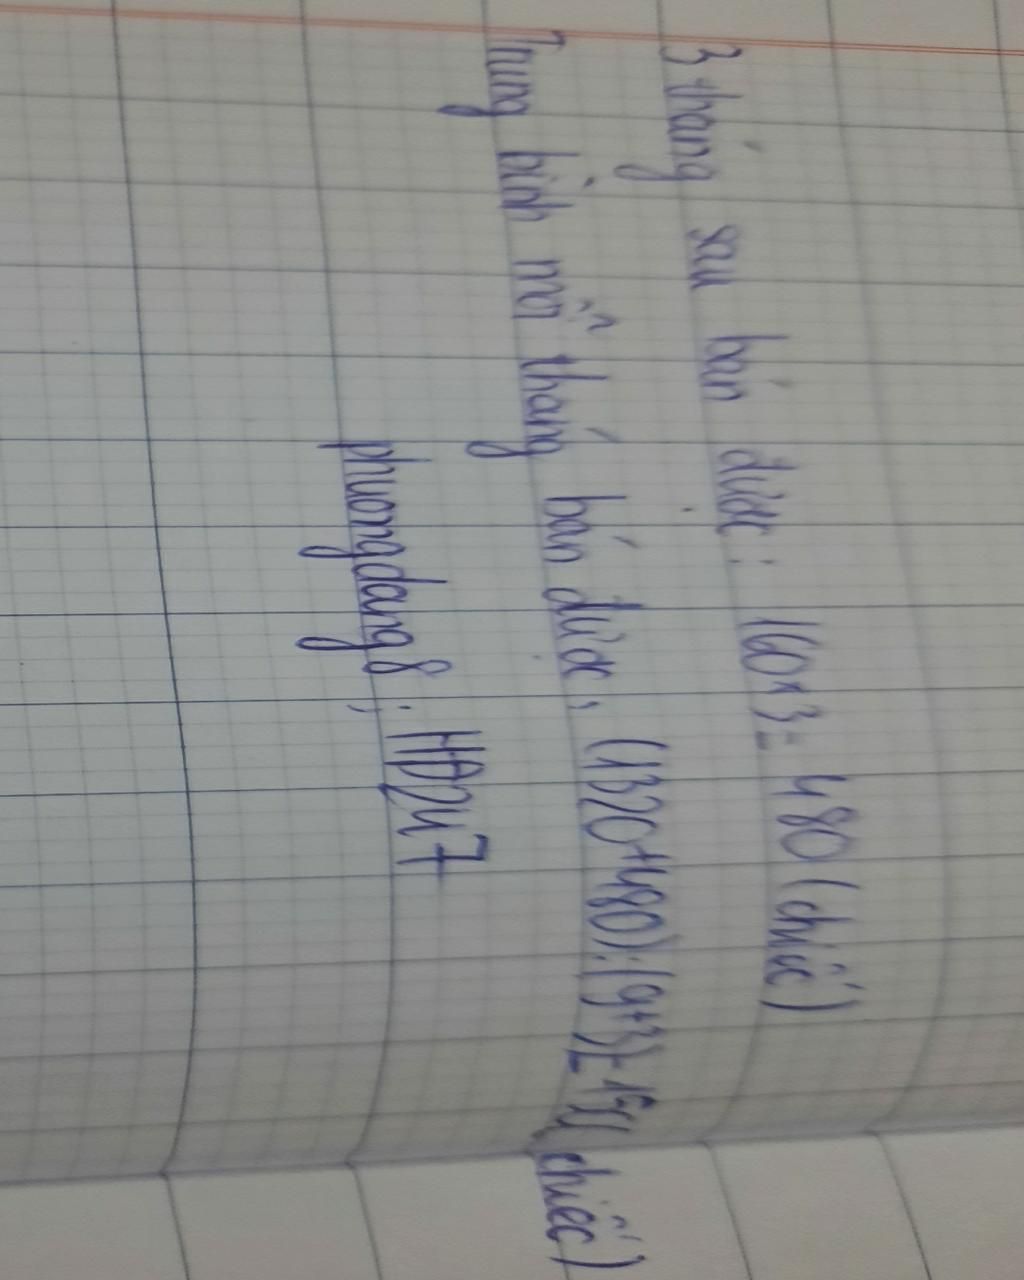 3 tháng sau bán được: 160 x 3 = 480 (chiếc)
Trung bình mỗi tháng bán được: (1320+480):(9+3)= (chiếc)
phuongdang8; HD247